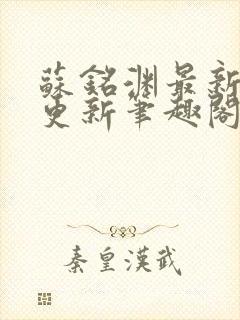 蘇銘淵最新
更新筆趣閣
秦皇漢武